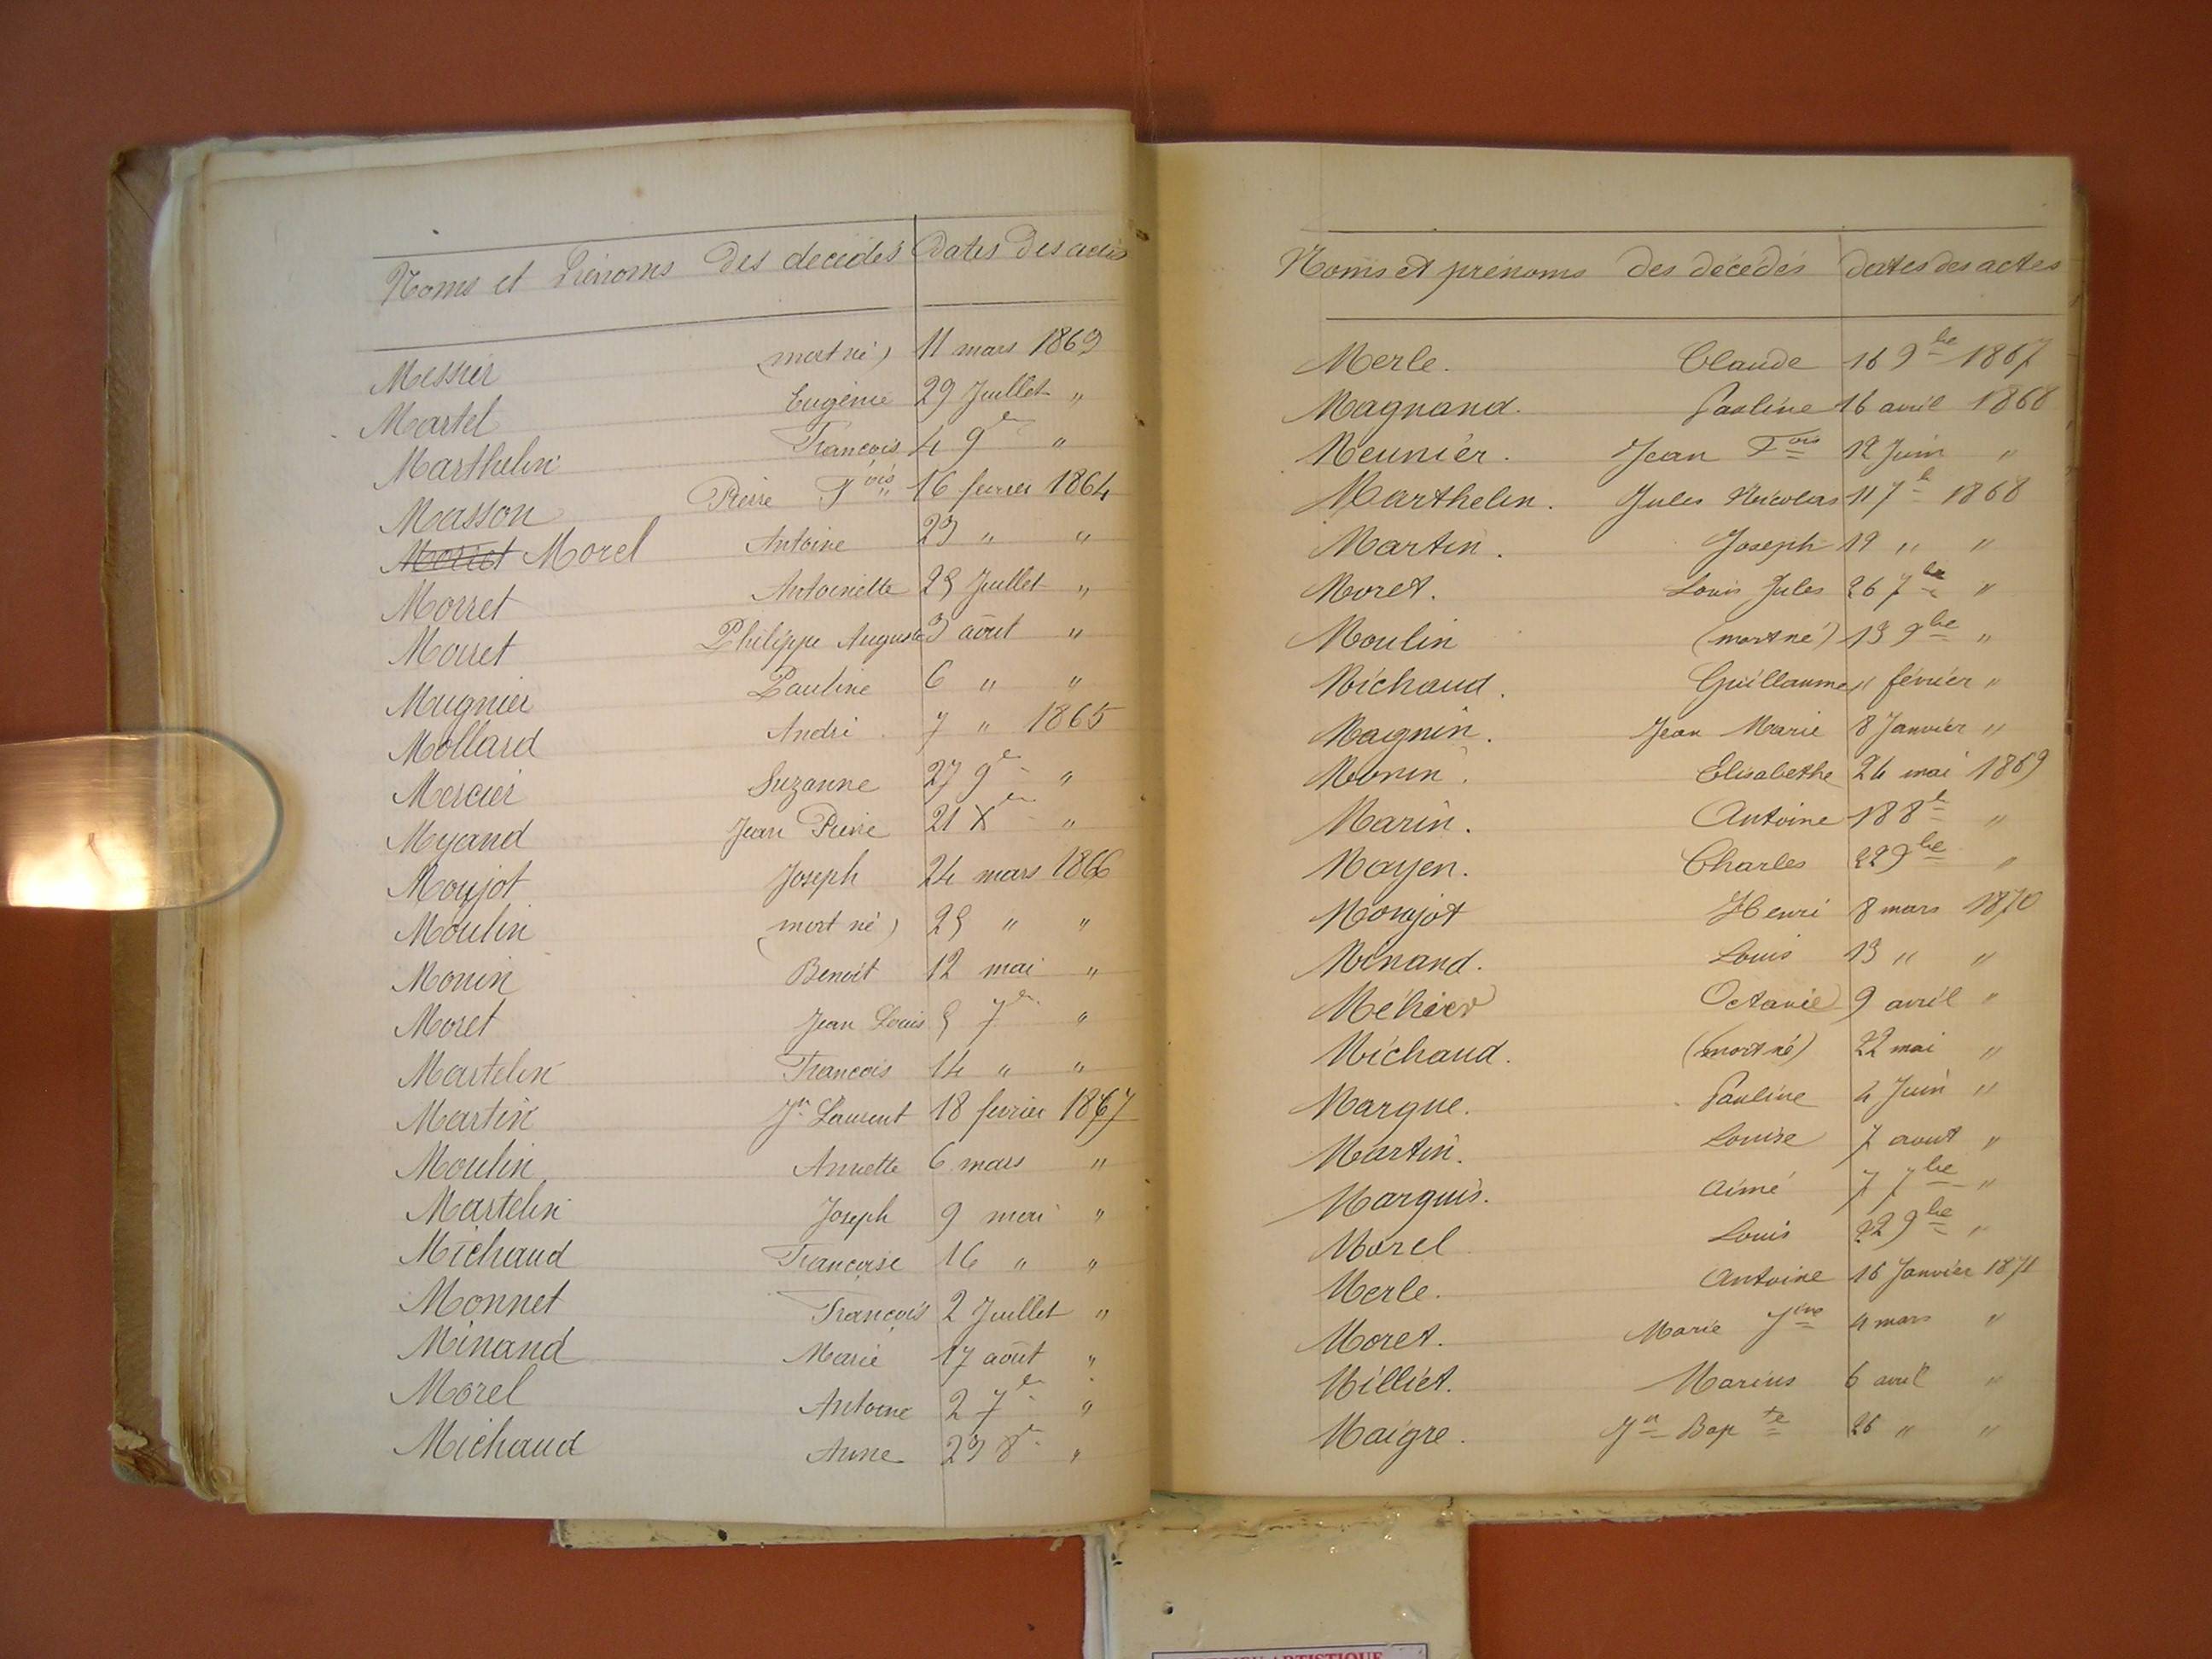 Noms et Prénoms des décédés Dates des actes
Messier (mort né) 11 mars 1863
Martel Eugénie 29 Juillet "
Marthelin François 4 9bre "
Masson Pierre Fois 16 fevrier 1864
Moriet Morel Antoine 23 " "
Morret Antoinette 25 Juillet "
Morret Philippe Auguste 3 août "
Mugnier Pauline 6 " "
Mollard André 7 " 1865
Mercier Suzanne 27 9bre "
Myand Jean Pierre 21 Xbre "
Moujot Joseph 24 mars 1866
Moulin (mort né) 25 " "
Monin Benoit 12 mai "
Moret Jean Louis 5 7bre "
Martelin François 14 " "
Martin Jn Laurent 18 fevrier 1867
Moulin Annette 6 mars "
Martelin Joseph 9 mai "
Michaud Françoise 16 " "
Monnet François 2 Juillet "
Minand Marie 17 août "
Morel Antoine 2 7bre "
Michaud Anne 23 8bre "
Noms et prénoms des décédés dates des actes
Merle. Claude 16 9bre 1867
Magnand. Pauline 16 avril 1868
Meunier. Jean Fois 12 Juin "
Marthelin. Jules Nicolas 11 7b 1868
Martin. Joseph 19 " "
Moret. Louis Jules 26 7bre "
Moulin (mort né) 13 9bre "
Michaud. Guillaume " février "
Magnin. Jean Marie 8 Janvier "
Monin. Elisabethe 24 mai 1869
Marin. Antoine 18 8b "
Mayen. Charles 22 9bre "
Moujot Henri 8 mars 1870
Minand. Louis 13 " "
Méhier Octavie 9 avril "
Michaud. (mort né) 22 mai "
Margue. Pauline 4 Juin "
Martin. Louise 7 aout "
Marquis. Aimé 7 7bre "
Morel Louis 22 9bre "
Merle. Antoine 16 Janvier 1871
Moret. Marie Jine 4 mars "
Milliet. Marius 6 avril "
Maigre. Jn Bapte 26 " "